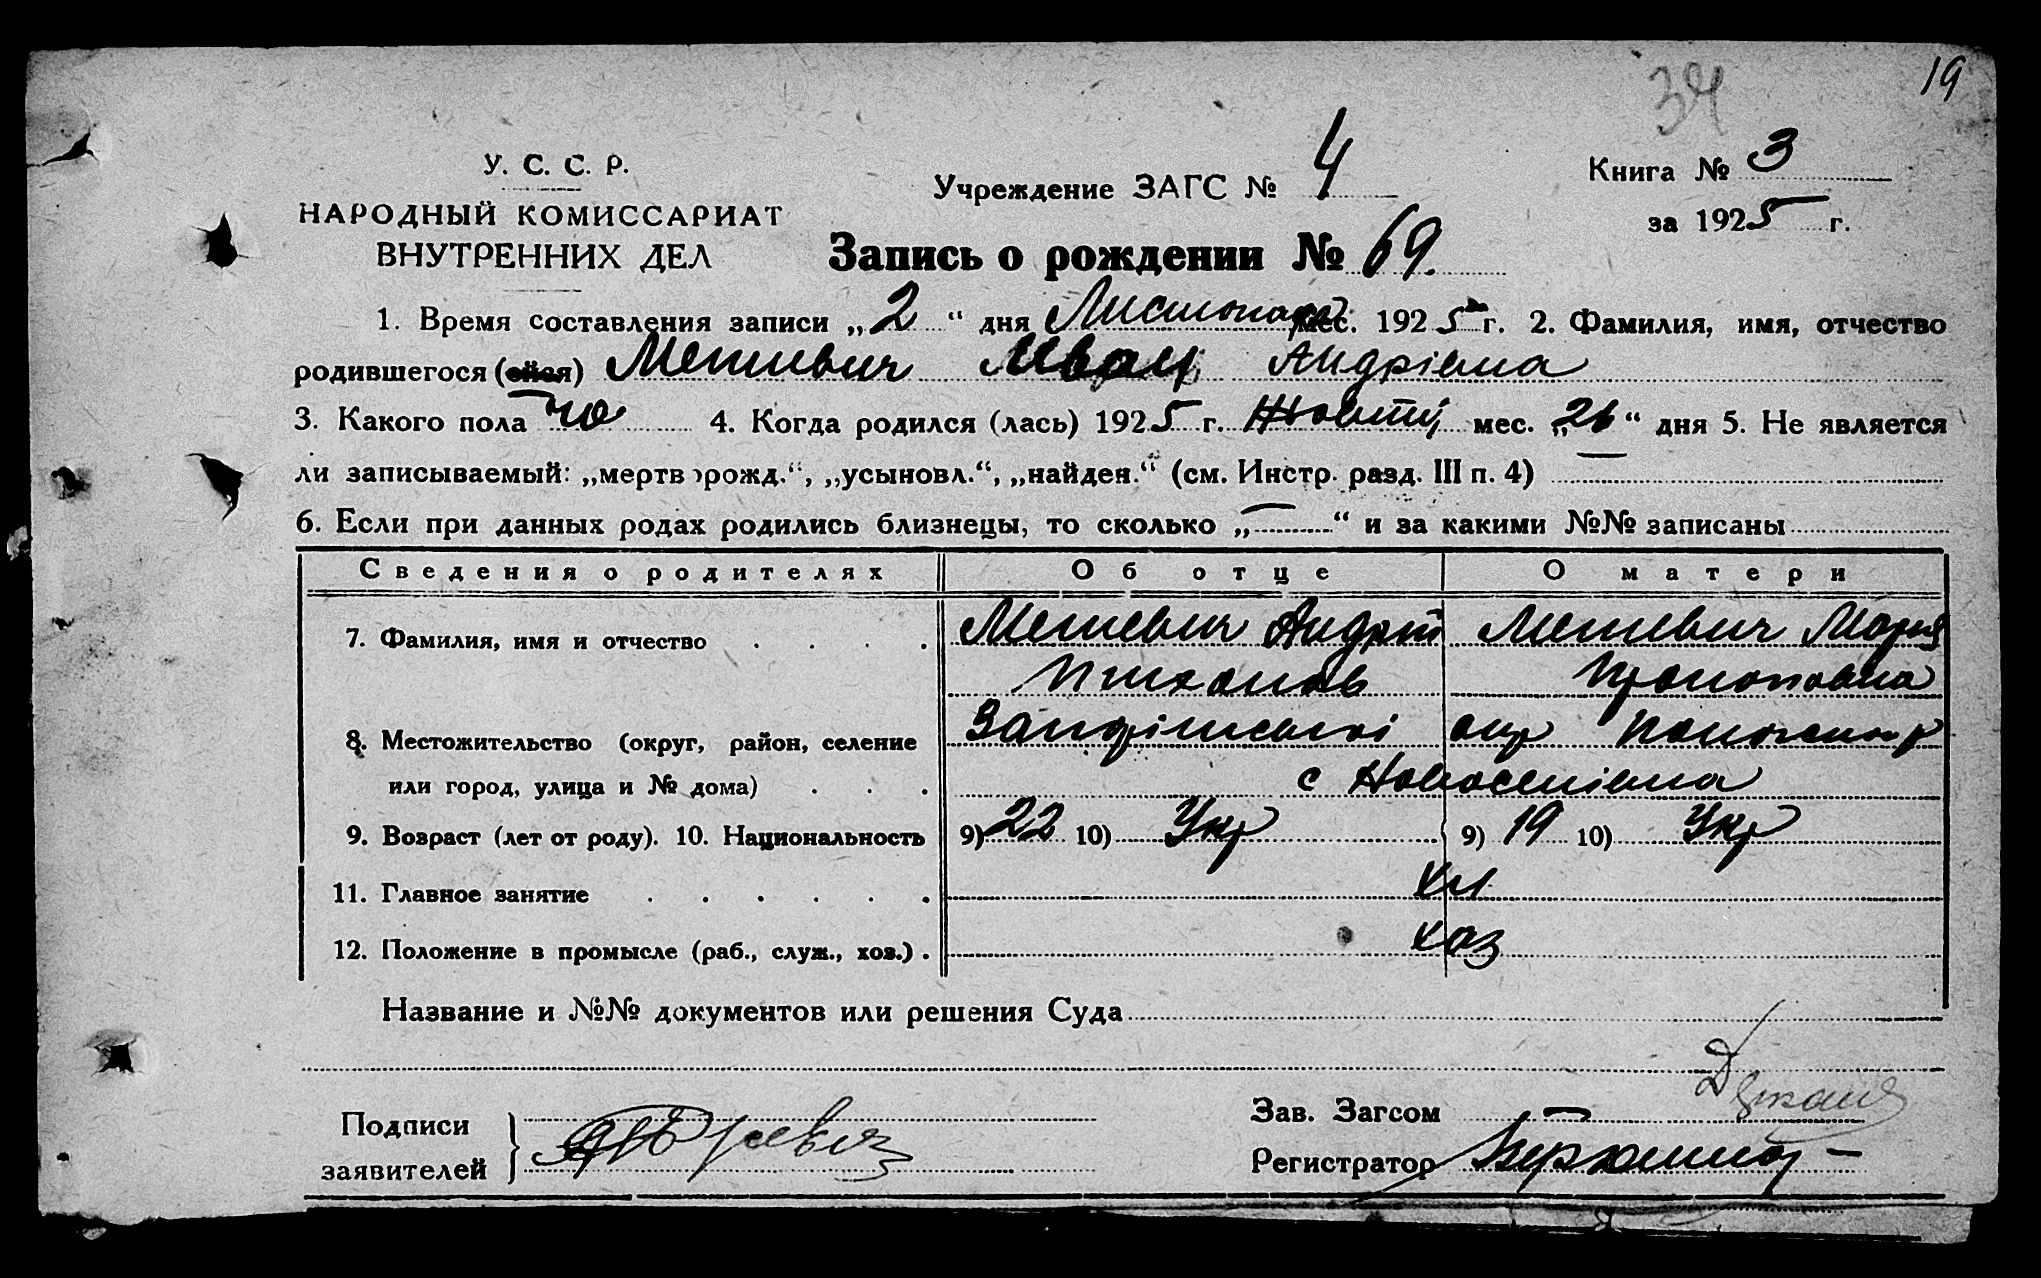 19
34
У. С. С. Р.
НАРОДНЫЙ КОМИССАРИАТ
ВНУТРЕННИХ ДЕЛ
Учреждение ЗАГС № 4
Книга № 3
за 1925 г.
Запись о рождении № 69.
1. Время составления записи „2“ дня Листопада мес. 1925 г. 2. Фамилия, имя, отчество
родившегося (ейся) Метевич Иван Андрієвич
3. Какого пола чо 4. Когда родился (лась) 1925 г. Жовтня мес. „26“ дня 5. Не является
ли записываемый: „мертворожд.“, „усыновл.“, „найден.“ (см. Инстр. разд. III п. 4) —
6. Если при данных родах родились близнецы, то сколько „—“ и за какими №№ записаны
Сведения о родителях Об отце О матери
7. Фамилия, имя и отчество Метевич Андрій Метевич Мария
Прокоповна
8. Местожительство (округ, район, селение Запорізької окр
или город, улица и № дома) с Новоселівка
9. Возраст (лет от роду). 10. Национальность 9) 22 10) Укр 9) 19 10) Укр
11. Главное занятие хл
12. Положение в промысле (раб., служ., хоз.) хоз
Название и №№ документов или решения Суда
Подписи
заявителей
Зав. Загсом
Регистратор